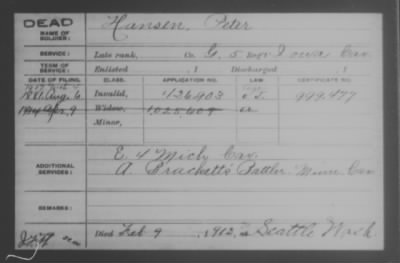 DEAD
NAME OF SOLDIER:
Hansen, Peter
SERVICE:
Late rank, Co. G, 5 Reg't Iowa Cav
TERM OF SERVICE:
Enlisted , 1 Discharged , 1
DATE OF FILING. CLASS. APPLICATION NO. LAW. CERTIFICATE NO.
1881 Aug. 6 Invalid, 426903 999.477
Apr. 9 Widow, 1,025,609
Minor,
ADDITIONAL SERVICES:
E. 4 Mich Cav.
A. Brackett's Battln. Minn Cav
REMARKS:
Died Feb 9 , 1912, at Seattle Wash